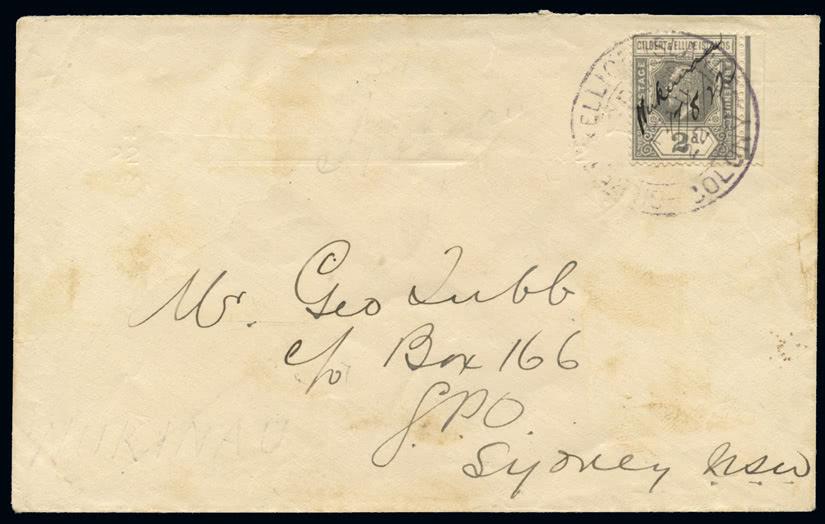 GILBERT & ELLICE ISLANDS
POSTAGE
2d
COLONY
Mr. Geo Tubb
c/o Box 166
GPO
Sydney NSW
NUKINAU